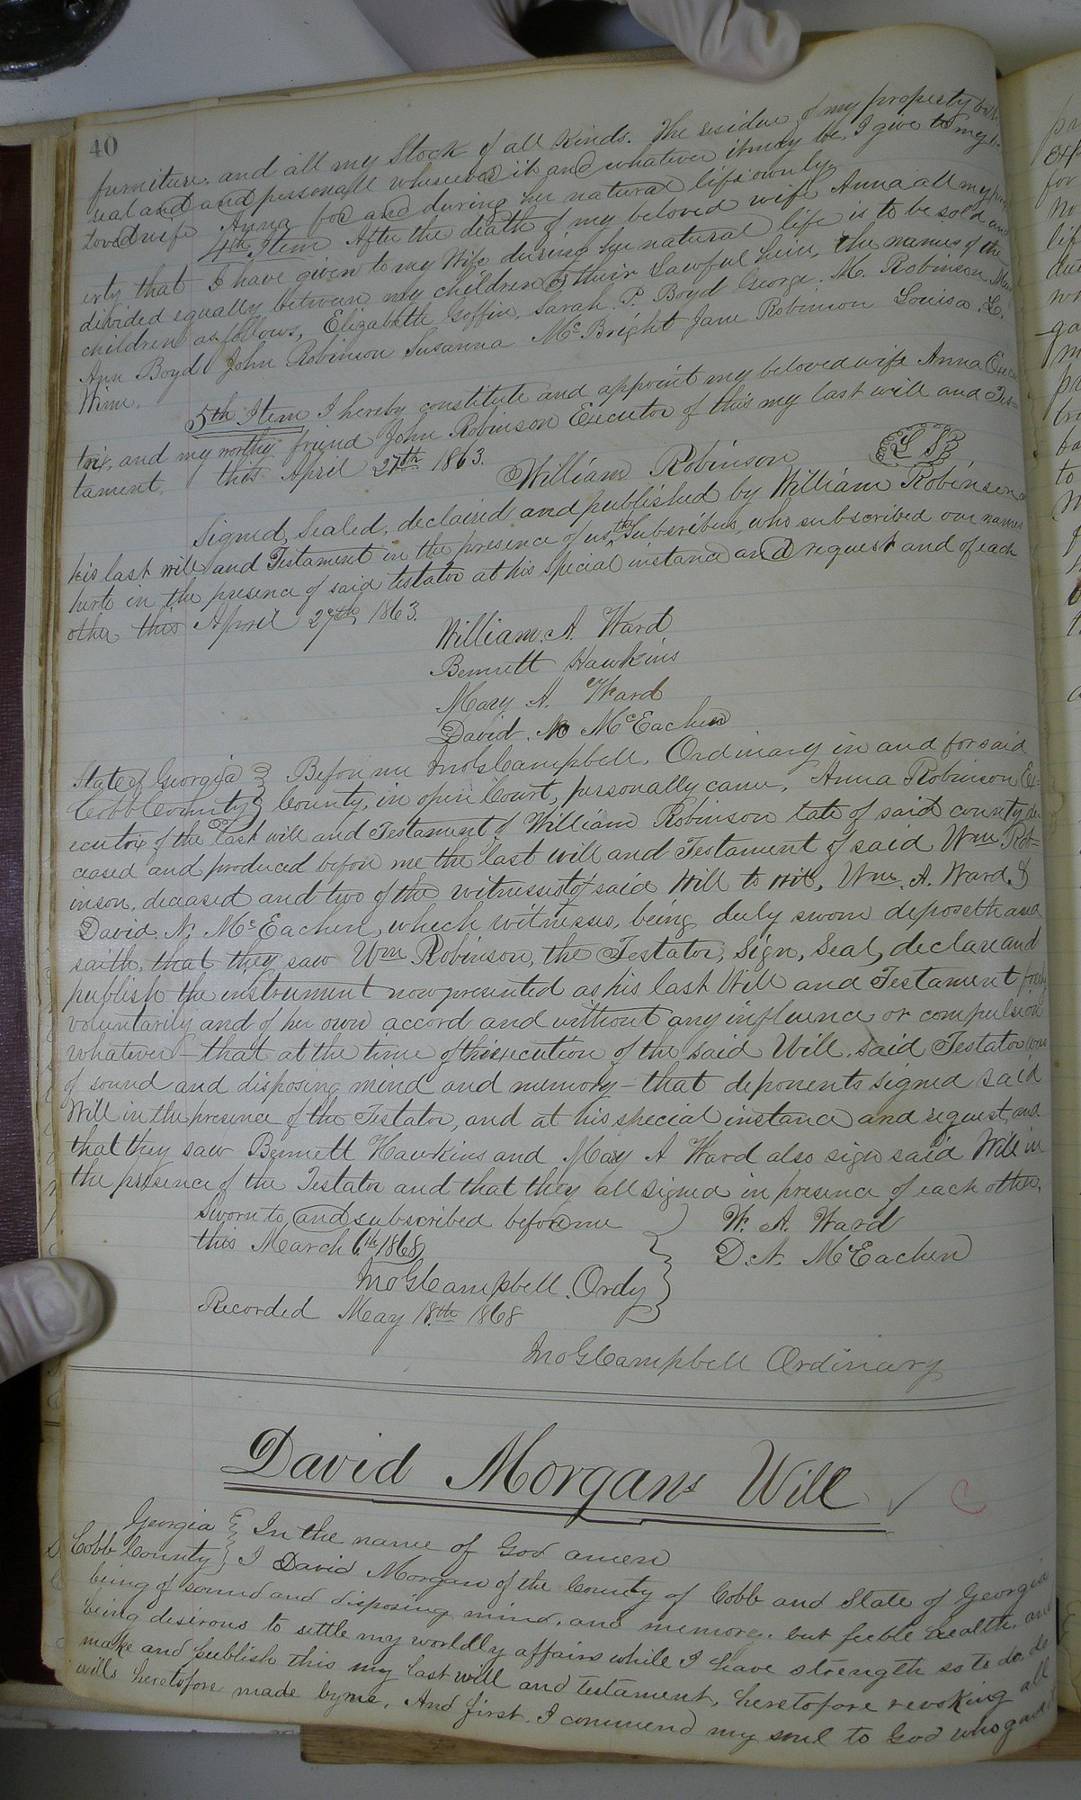 40
furniture, and all my Stock of all Kinds. The residue of my property both
ual and and personall whereever it and whatever it may be, I give to my be
loved wife Anna for and during her natural life ownly.
4th Item After the death of my beloved wife Anna all my prop
erty that I have given to my Wife during her natural life is to be sold and
divided equally between my children or their Lawful heirs, the names of the
children as follows, Elizabeth Goffin, Sarah P. Boyd George M. Robinson Mary
Ann Boyd John Robinson Susanna McBright Jane Robinson Louisa L.
Winn.
5th Item I hereby constitute and appoint my beloved wife Anna Execu
trix, and my worthy friend John Robinson Executor of this my last will and Tes=
tament, this April 27th 1863.
William Robinson LS
Signed, Sealed, declaired and published by William Robinson as
his last will and Testament in the presence of us the Subscribers, who subscribed our names
herto in the presence of said testator at his special instance and request and of each
other this April 27th 1863.
William. A. Ward
Bennett Hawkins
Mary A. Ward
David. N McEachen
State of Georgia } Before me Jno G Campbell, Ordinary in and for said
Cobb County } County, in open Court, personally came, Anna Robinson Ex-
ecutrix of the Last will and Testament of William Robinson late of said county de
ceased and produced before me the last will and Testament of said Wm Rob=
inson, deceased and two of the witnesses of said Will to wit, Wm. A. Ward, &
David. N. McEachen, which witnesses, being duly sworn deposeth and
saith, that they saw Wm Robinson, the Testator, Sign, Seal, declare and
publish the instrument now presented as his last Will and Testament freely
voluntarily and of her own accord and without any influence or compulsion
whatever - that at the time of this execution of the said Will, said Testator was
of sound and disposing mind and memory - that deponents signed said
Will in the presence of the Testator, and at his special instance and request, and
that they saw Bennett Hawkins and Mary A Ward also sign said Will in
the presence of the Testator and that they all signed in presence of each other.
Sworn to, and subscribed before me } W. A. Ward
this March 6th 1868, } D. N. McEachen
Jno G Campbell. Ordy
Recorded May 18th 1868
Jno G Campbell Ordinary
David Morgans Will
Georgia } In the name of God amen
Cobb County } I David Morgan of the County of Cobb and State of Georgia
being of sound and disposing mind, and memory, but feeble health, and
being desirous to settle my worldly affairs while I have strength so to do, do
make and publish this my last will and testament, heretofore revoking all
wills heretofore made by me, And first. I commend my soul to God who gave it